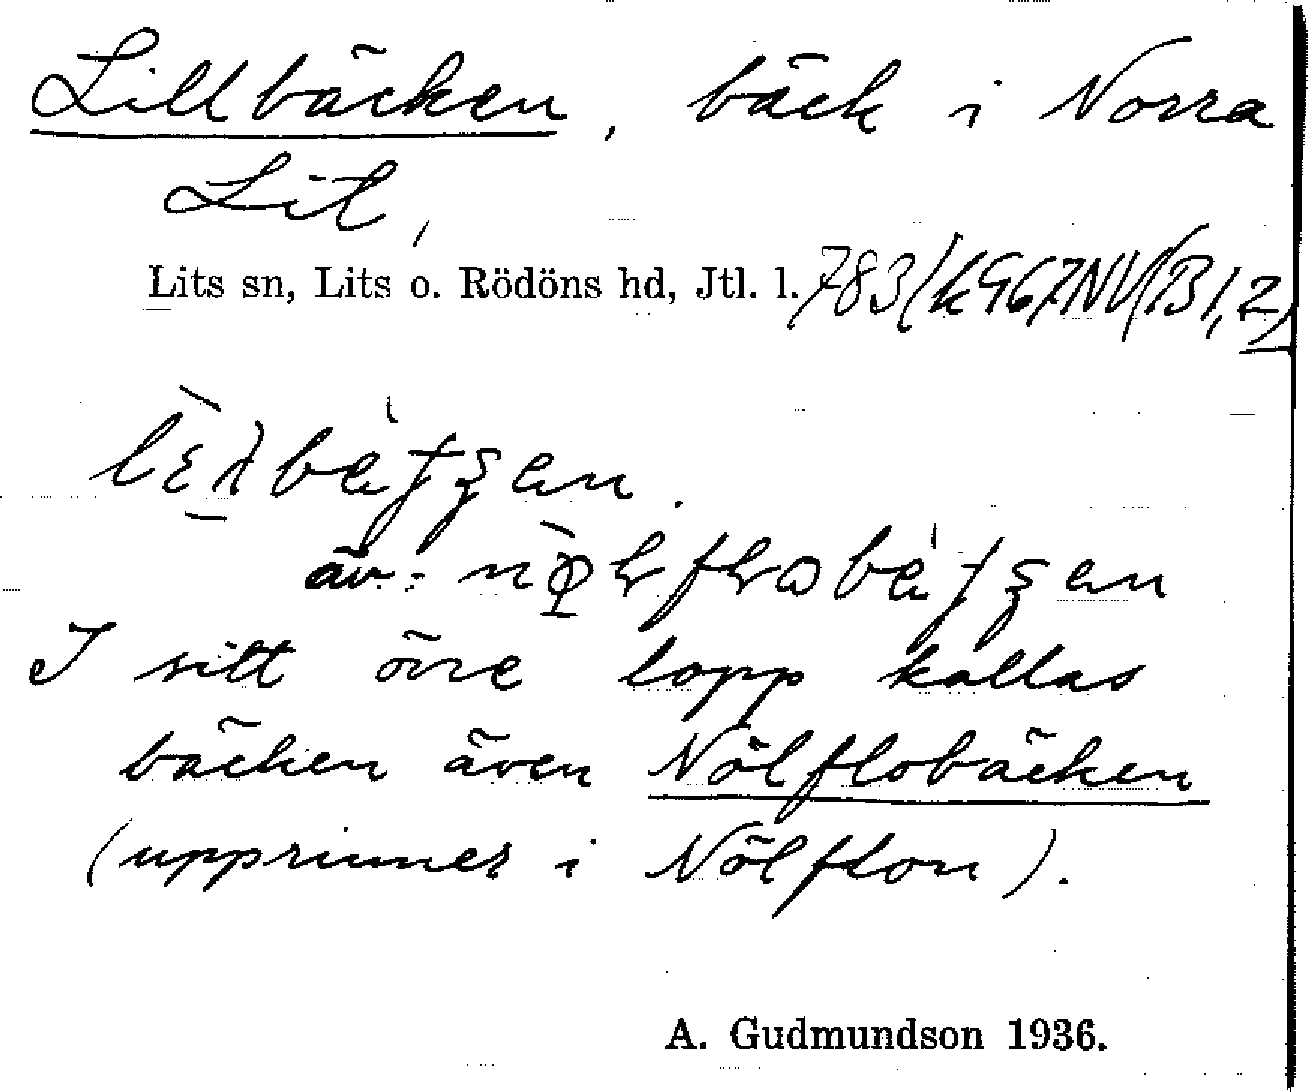 Lillbäcken, bäck i Norra
Lit,
Lits sn, Lits o. Rödöns hd, Jtl. l. 783/k967NV/B1,2)
äv:
I sitt övre lopp kallas
bäcken även Nölflobäcken
(upprinner i Nölflon).
A. Gudmundson 1936.